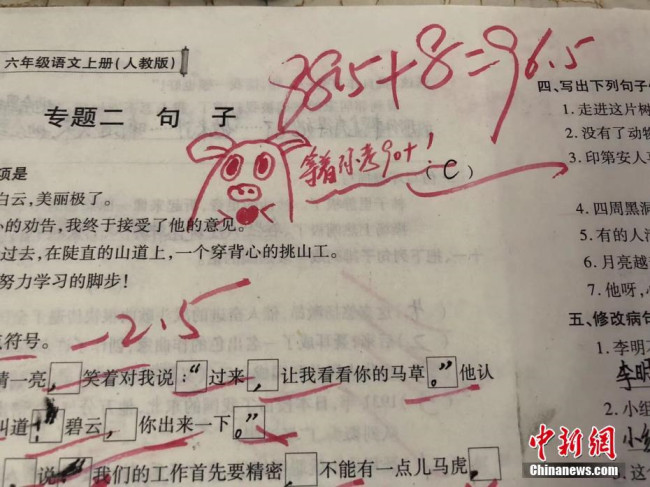 六年级语文上册(人教版)
88.5+8=96.5
专题二 句 子
等着你考90+!
(C)
项是
白云,美丽极了。
小的劝告,我终于接受了他的意见。
过去,在陡直的山道上,一个穿背心的挑山工。
努力学习的脚步!
符号。
-2.5
睛一亮,笑着对我说:“过来,让我看看你的马草。”他认
叫道:“碧云,你出来一下。”
,说:“我们的工作首先要精密,不能有一点儿马虎,
四、写出下列句子
1.走进这片树
2.没有了动物
3.印第安人
4.四周黑洞
5.有的人
6.月亮越
7.他呀,
五、修改病句
1.李明
李明
2.小组
小组
3.这
中新网
Chinanews.com